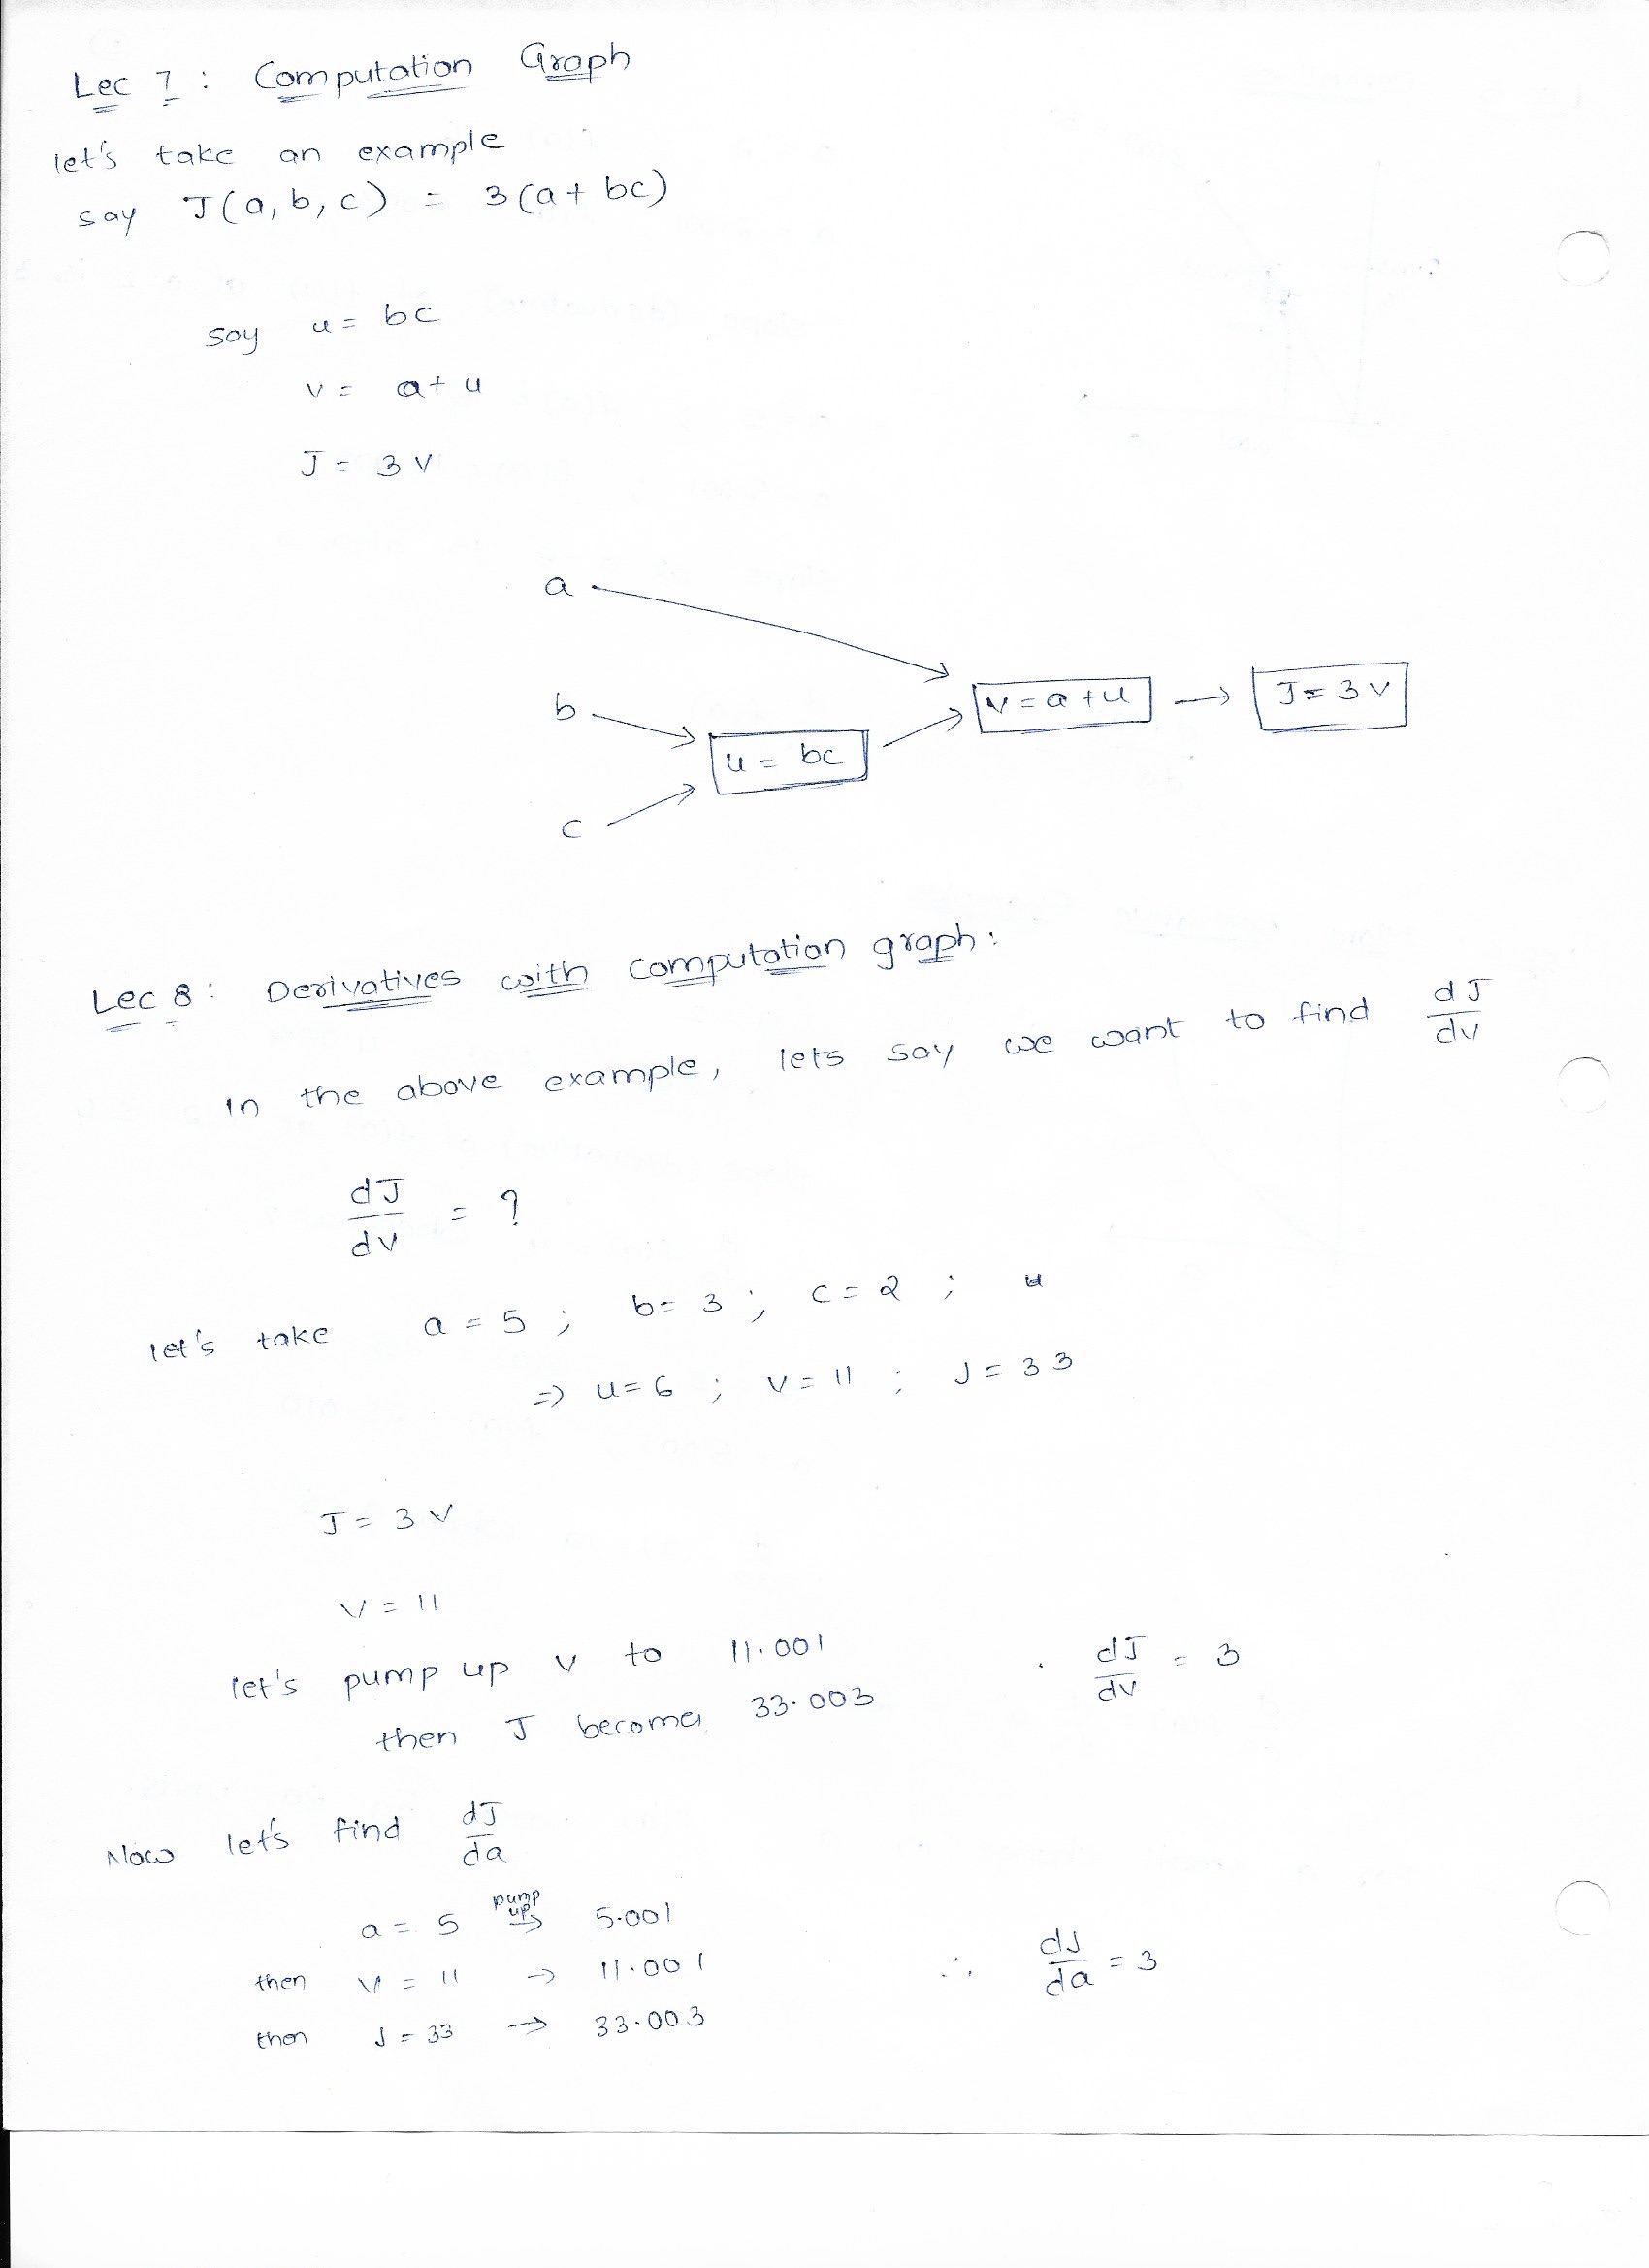 Lec 7 : Computation Graph
let's take an example
say J(a, b, c) = 3(a + bc)
say u = bc
v = a + u
J = 3v
a
b
c
u = bc
v = a + u
J = 3v
Lec 8 : Derivatives with computation graph :
In the above example, lets say we want to find dJ/dv
dJ/dv = ?
let's take a = 5 ; b = 3 ; c = 2 ;
=> u = 6 ; v = 11 ; J = 33
J = 3v
v = 11
let's pump up v to 11.001
then J becomes 33.003
dJ/dv = 3
Now let's find dJ/da
a = 5 pump up → 5.001
then v = 11 → 11.001
then J = 33 → 33.003
∴ dJ/da = 3